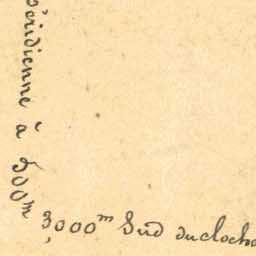 éridienne à 500m
3,000m Sud du cloch